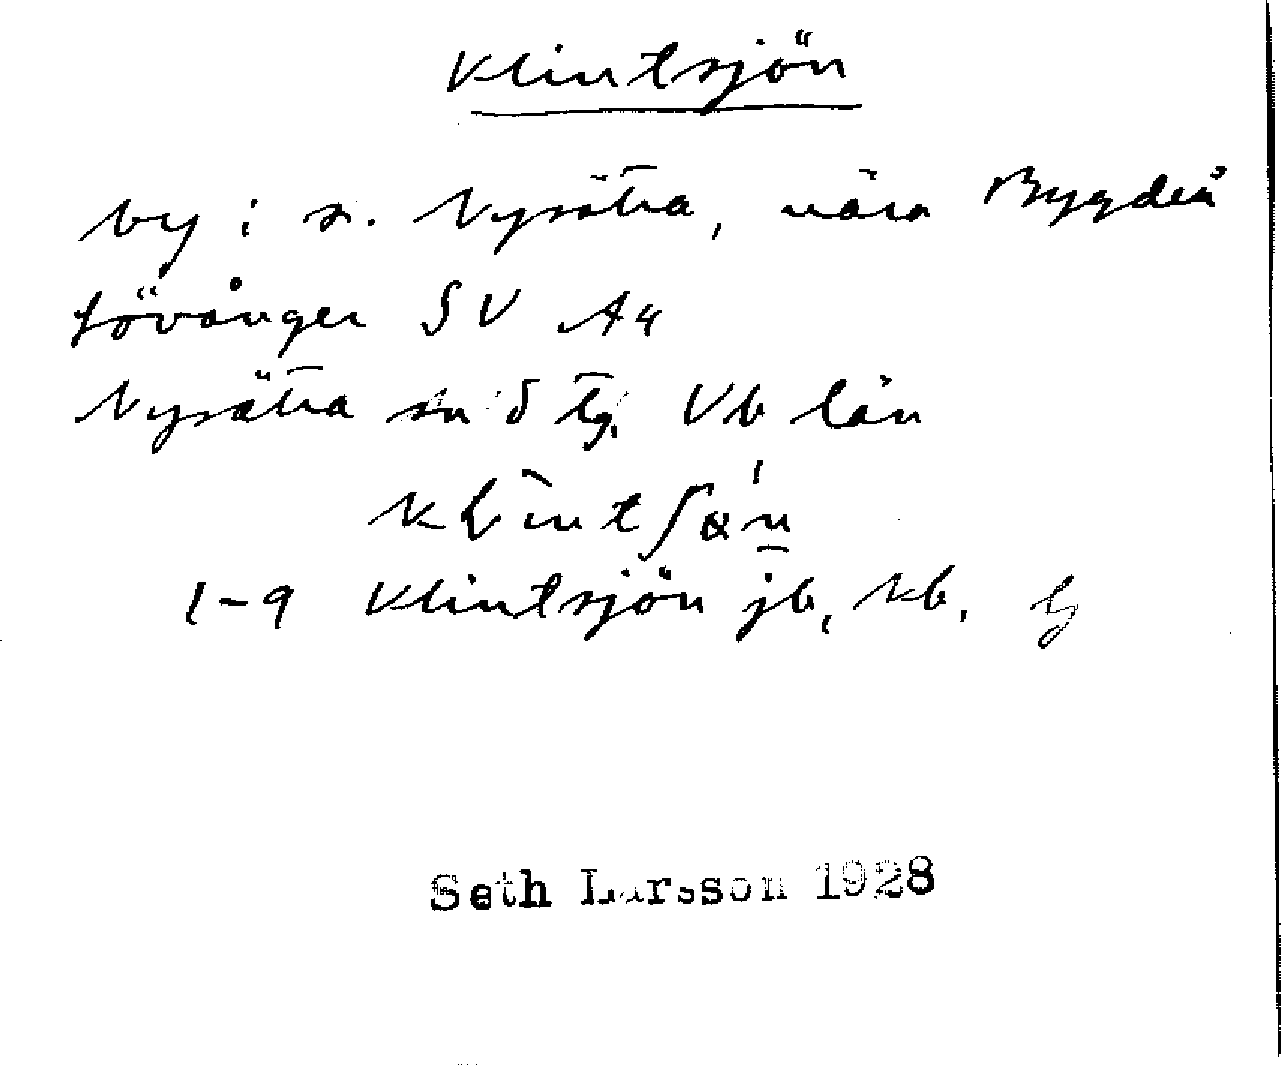 Klintsjön
by i s. Nysätra, nära Bygdeå
Lövånger SV A4
Nysätra sn S tg. Vb län
1-9 Klintsjön jb, kb,
Seth Larsson 1928